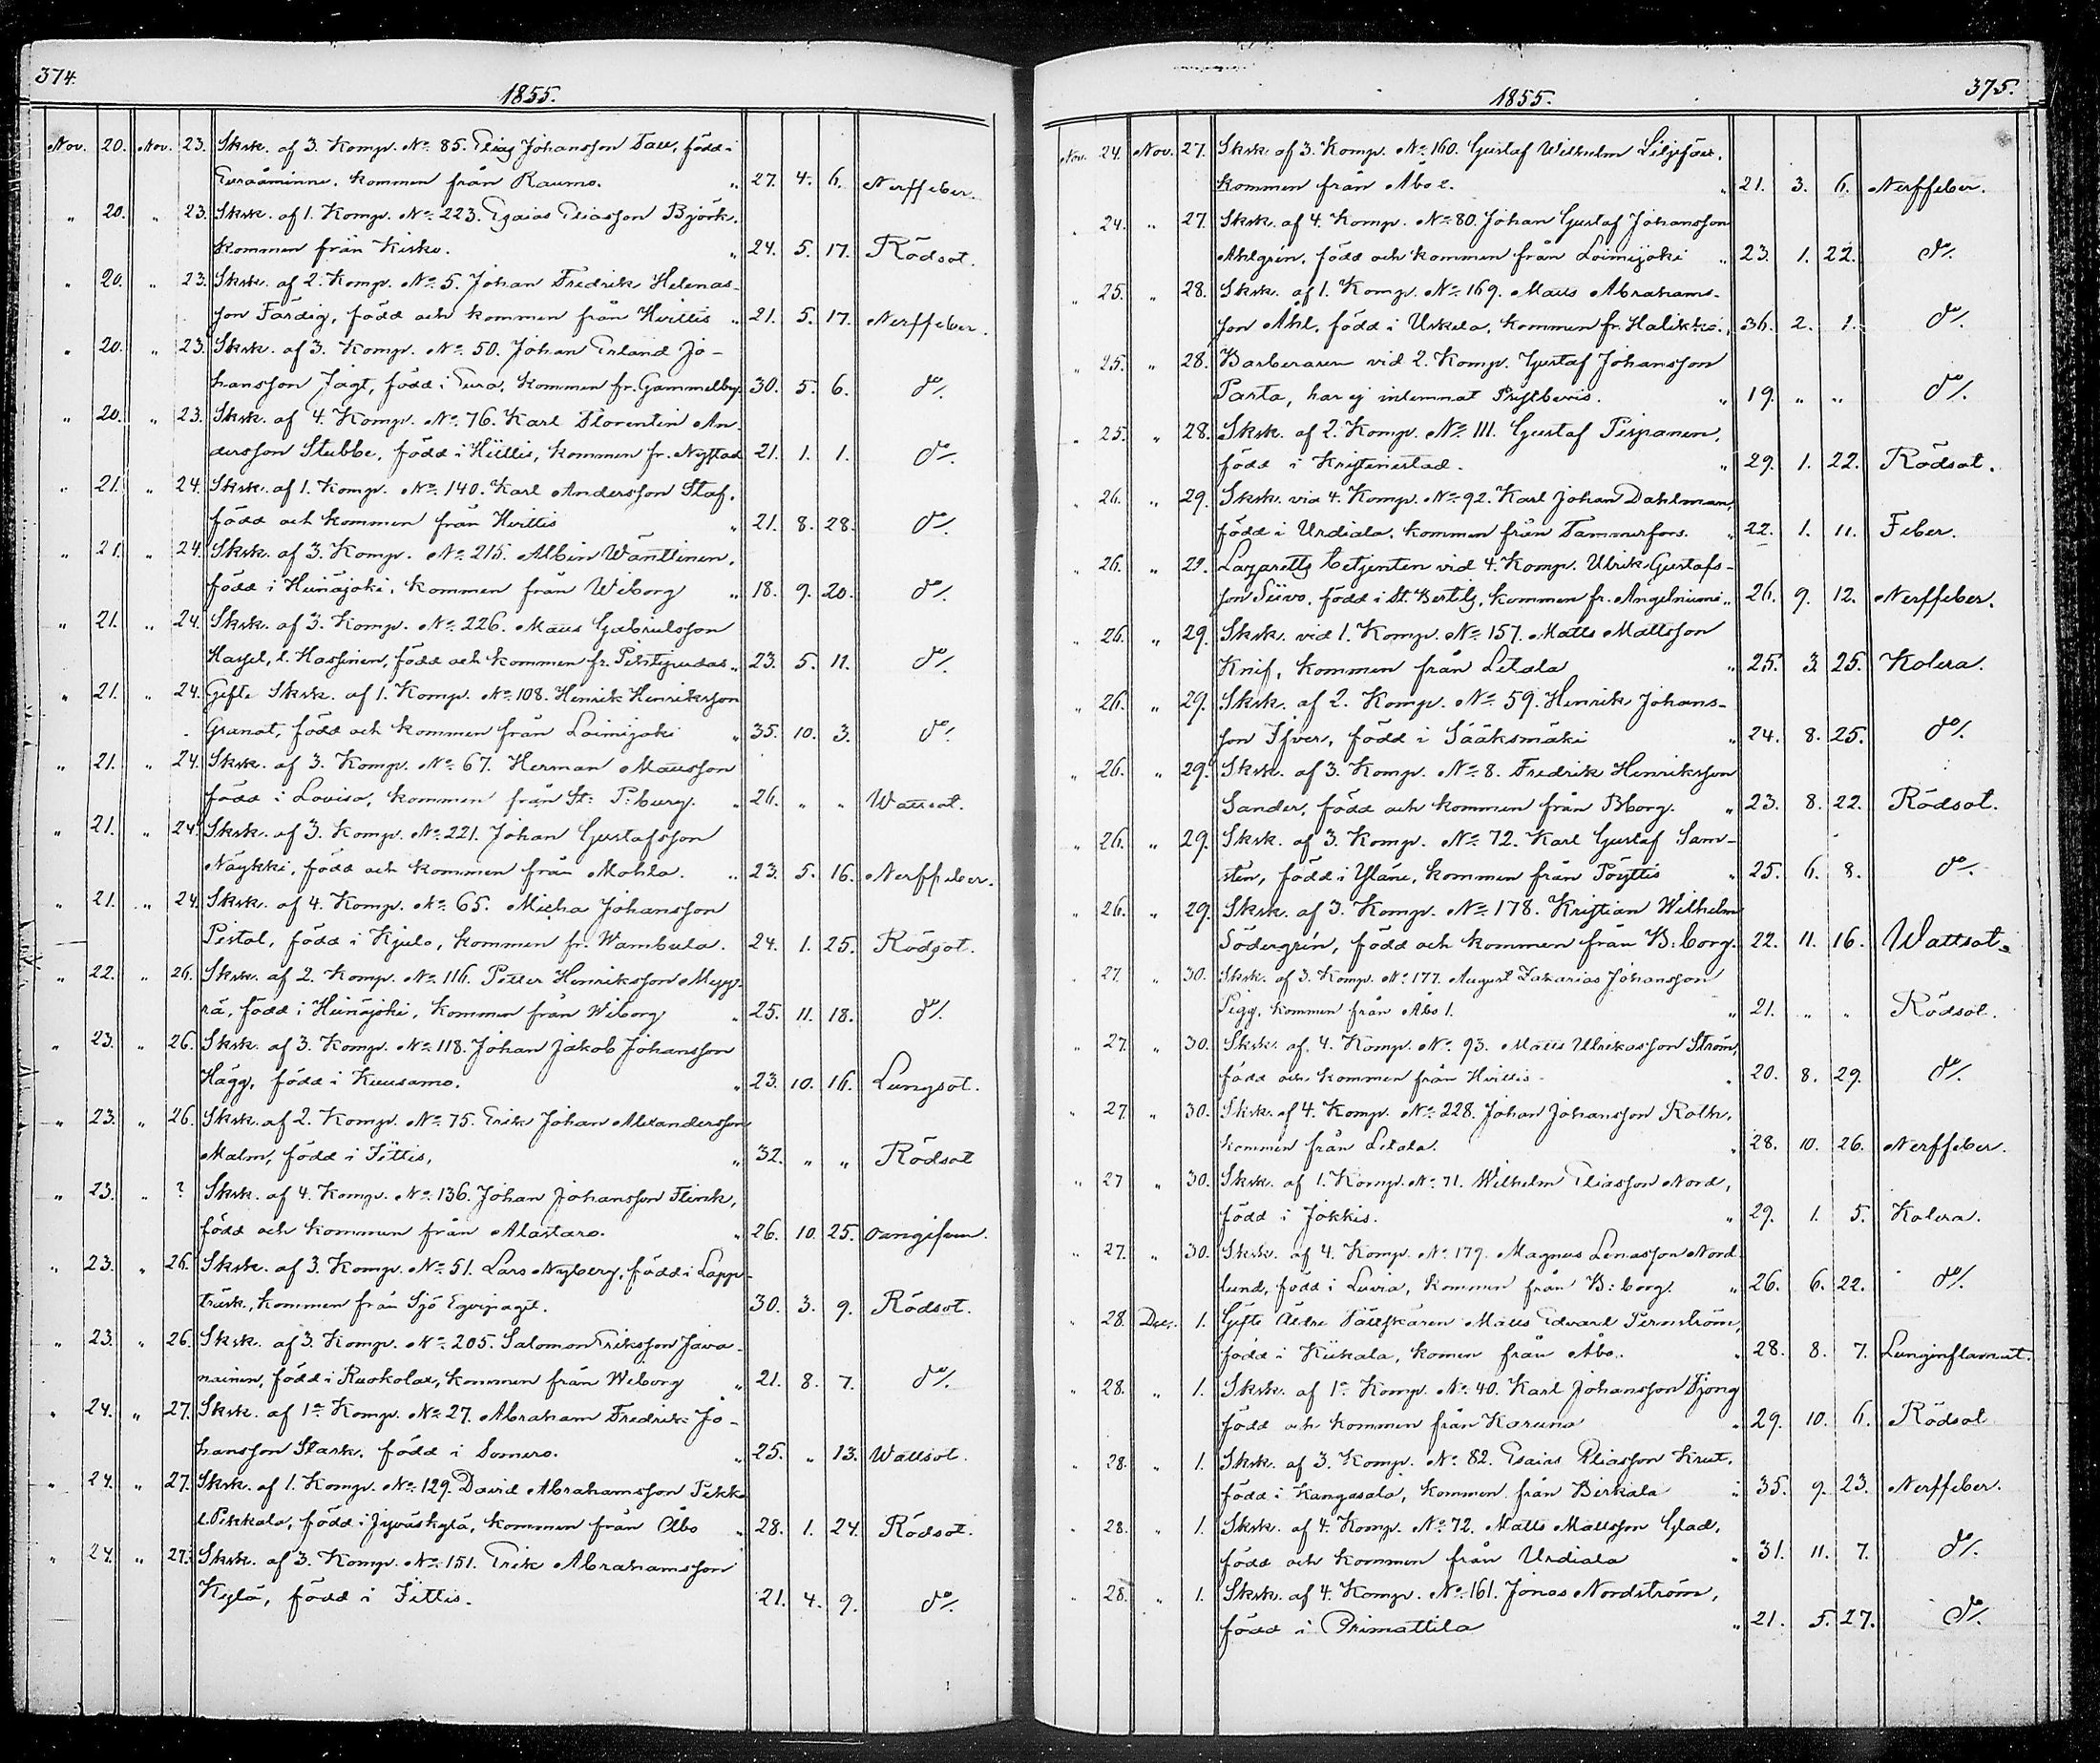 374.
1855.
Nov. 20. Nov. 23. Sksk. af 3. Komp. No 85. Elias Johansson Tall, född i
Euraåminne, kommen från Raumo. „ 27. 4. 6. Nerffeber.
„ 20. „ 23. Sksk. af 1. Komp. No 223. Esaias Eliasson Björk,
kommen från Kisko. „ 24. 5. 17. Rödsot.
„ 20. „ 23. Sksk. af 2. Komp. No 5. Johan Fredrik Helenas-
son Färdig, född och kommen från Hvittis „ 21. 5. 17. Nerffeber.
„ 20. „ 23. Sksk. af 3. Komp. No 50. Johan Erland Jo-
hansson Jägt, född i Eura, kommen fr. Gammelby. 30. 5. 6. do/.
„ 20. „ 23. Sksk. af 4. Komp. No 76. Karl Florentin An-
dersson Stubbe, född i Hiittis, kommen fr. Nystad 21. 1. 1. do/.
„ 21. „ 24. Sksk. af 1. Komp. No 140. Karl Andersson Staf,
född och kommen från Hvittis „ 21. 8. 28. do/.
„ 21. „ 24. Sksk. af 3. Komp. No 215. Albin Wänttinen,
född i Heinäjoki, kommen från Weborg „ 18. 9. 20. do/.
„ 21. „ 24. Sksk. af 3. Komp. No 226. Matts Gabrielsson
Hassel, l. Hassinen, född och kommen fr. „ 23. 5. 11. do/.
„ 21. „ 24. Gifte Sksk. af 1. Komp. No 108. Henrik Henriksson
Granat, född och kommen från Loimijoki „ 35. 10. 3. do/.
„ 21. „ 24. Sksk. af 3. Komp. No 67. Herman Mattsson
född i Lovisa, kommen från St: P:burg. „ 26. „ „ Wattsot.
„ 21. „ 24. Sksk. af 3. Komp. No 221. Johan Gustafsson
Näykki, född och kommen från Mohla. „ 23. 5. 16. Nerffeber.
„ 21. „ 24. Sksk. af 4. Komp. No 65. Micha Johansson
Pistol, född i Kjulo, kommen fr. Wambula. 24. 1. 25. Rödsot.
„ 22. „ 26. Sksk. af 2. Komp. No 116. Petter Henriksson Mägg-
rä, född i Heinäjoki, kommen från Wiborg „ 25. 11. 18. do/.
„ 23. „ 26. Sksk. af 3. Komp. No 118. Johan Jakob Johansson
Hägg, född i Kuusamo. „ 23. 10. 16. Lungsot.
„ 23. „ 26. Sksk. af 2. Komp. No 75. Erik Johan Alexandersson
Malm, född i Fittis, „ 32. „ „ Rödsot
„ 23. „ ? Sksk. af 4. Komp. No 136. Johan Johansson Flink,
född och kommen från Alastaro. „ 26. 10. 25. oangifven.
„ 23. „ 26. Sksk. af 3. Komp. No 51. Lars Nyberg, född i Lapp-
träsk, kommen från Sjö Eqvipaget. 30. 3. 9. Rödsot.
„ 23. „ 26. Sksk. af 3. Komp. No 205. Salomon Eriksson Java-
nainen, född i Ruokolax, kommen från Weborg „ 21. 8. 7. do/.
„ 24. „ 27. Sksk. af 1a Komp. No 27. Abraham Fredrik Jo-
hansson Stark, född i Somero. „ 25. „ 13. Wattsot.
„ 24. „ 27. Sksk. af 1. Komp. No 129. David Abrahamsson Pekka
l. Pekkala, född i Jyväskylä, kommen från Åbo „ 28. 1. 24. Rödsot.
„ 24. „ 27. Sksk. af 3. Komp. No 151. Erik Abrahamsson
Kylä, född i Fittis. 21. 4. 9. do/.
375.
1855.
Nov. 24. Nov. 27. Sksk. af 3. Komp. No 160. Gustaf Wilhelm Liljefors,
kommen från Åbo l. „ 21. 3. 6. Nerffeber.
„ 24. „ 27. Sksk. af 4. Komp. No 80. Johan Gustaf Johansson
Ahlgrén, född och kommen från Loimijoki „ 23. 1. 22. do/.
„ 25. „ 28. Sksk. af 1. Komp. No 169. Matts Abrahams-
son Ahl, född i Uskela, kommen fr. Halikko. „ 36. 2. 1. do/.
„ 25. „ 28. Barberaren vid 2. Komp. Gustaf Johansson
Parta, har ej inlemnat Prestbevis. „ 19. „ „ do/.
„ 25. „ 28. Sksk. af 2. Komp. No 111. Gustaf Pispanen,
född i Kristinestad. „ 29. 1. 22. Rödsot.
„ 26. „ 29. Sksk. vid 4. Komp. No 92. Karl Johan Dahlman,
född i Urdiala, kommen från Tammerfors. „ 22. 1. 11. Feber.
„ 26. „ 29. Lazaretts betjenten vid 4. Komp. Ulrik Gustafs-
son Siivo, född i St. Bertils, kommen fr. Angelniemi „ 26. 9. 12. Nerffeber.
„ 26. „ 29. Sksk. vid 1. Komp. No 157. Matts Mattsson
Knif, kommen från Letala „ 25. 3. 25. Kolera.
„ 26. „ 29. Sksk. af 2. Komp. No 59. Henrik Johans-
son Ifver, född i Sääksmäki „ 24. 8. 25. do/.
„ 26. „ 29. Sksk. af 3. Komp. No 8. Fredrik Henriksson
Sander, född och kommen från Bborg. „ 23. 8. 22. Rödsot.
„ 26. „ 29. Sksk. af 3. Komp. No 72. Karl Gustaf Sam-
stén, född i Yläne, kommen från Pöyttis „ 25. 6. 8. do/.
„ 26. „ 29. Sksk. af 3. Komp. No 178. Kristian Wilhelm
Södergrén, född och kommen från B:borg. 22. 11. 16. Wattsot.
„ 27. „ 30. Sksk. af 3. Komp. No 177. August Zakarias Johansson
Pigg, kommen från Åbo l. „ 21. „ „ Rödsot.
„ 27. „ 30. Sksk. af. 4. Komp. No 93. Matts Ulrikasson Ström,
född och kommen från Hvittis. „ 20. 8. 29. do/.
„ 27. „ 30. Sksk. af 4. Komp. No 228. Johan Johansson Roth,
kommen från Letala. „ 28. 10. 26. Nerffeber.
„ 27 „ 30. Sksk. af 1. Komp. No 71. Wilhelm Eliasson Nord,
född i Jokkis. „ 29. 1. 5. Kolera.
„ 27. „ 30. Sksk. af 4. Komp. No 179. Magnus Lenasson Nord-
lund, född i Luvia, kommen från B:borg. „ 26. 6. 22. do/.
„ 28. Dec. 1. Gifte Äldre Fältskären Matts Edvard Pernström,
född i Kiikala, komen från Åbo. „ 28. 8. 7. Lunginflamat.
„ 28. „ 1. Sksk. af 1a Komp. No 40. Karl Johansson Tjong
född och kommen från Karuna „ 29. 10. 6. Rödsot
„ 28. „ 1. Sksk. af 3. Komp. No 82. Esaias Eliasson Krut,
född i Kangasala, kommen från Birkala „ 35. 9. 23. Nerffeber.
„ 28. „ 1. Sksk. af 4. Komp. No 72. Matts Mattsson Glad,
född och kommen från Urdiala „ 31. 11. 7. do/.
„ 28. „ 1. Sksk. af 4. Komp. No 161. Jonas Nordström,
född i Orimattila „ 21. 5. 27. do/.